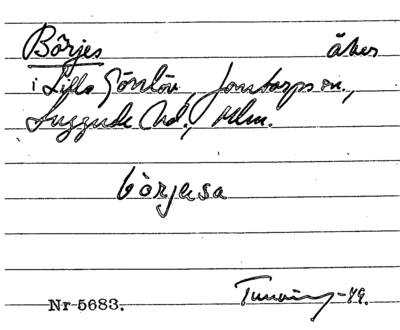 Börjes åker
i Lilla Gönlöv, Jonstorps sn.,
Luggude hd., Mlm.
börjesa
Nr 5683. -49.